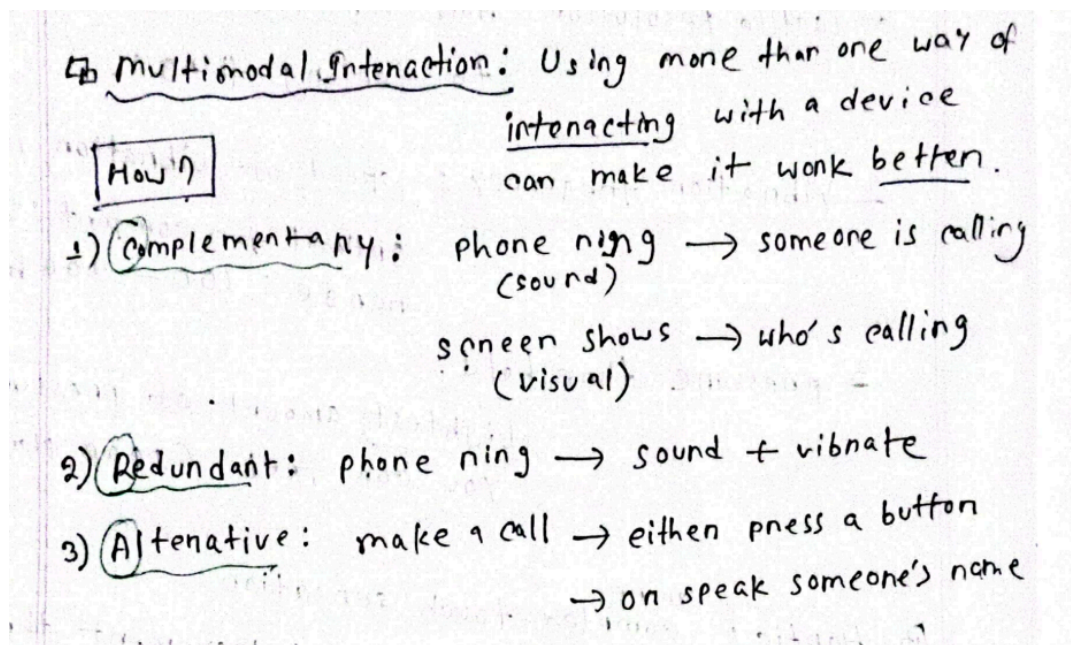 Multimodal Interaction: Using more than one way of
interacting with a device
How?
can make it work better.
1) Complementary: phone ring → someone is calling
(sound)
screen shows → who's calling
(visual)
2) Redundant: phone ring → sound + vibrate
3) Altenative: make a call → either press a button
→ or speak someone's name